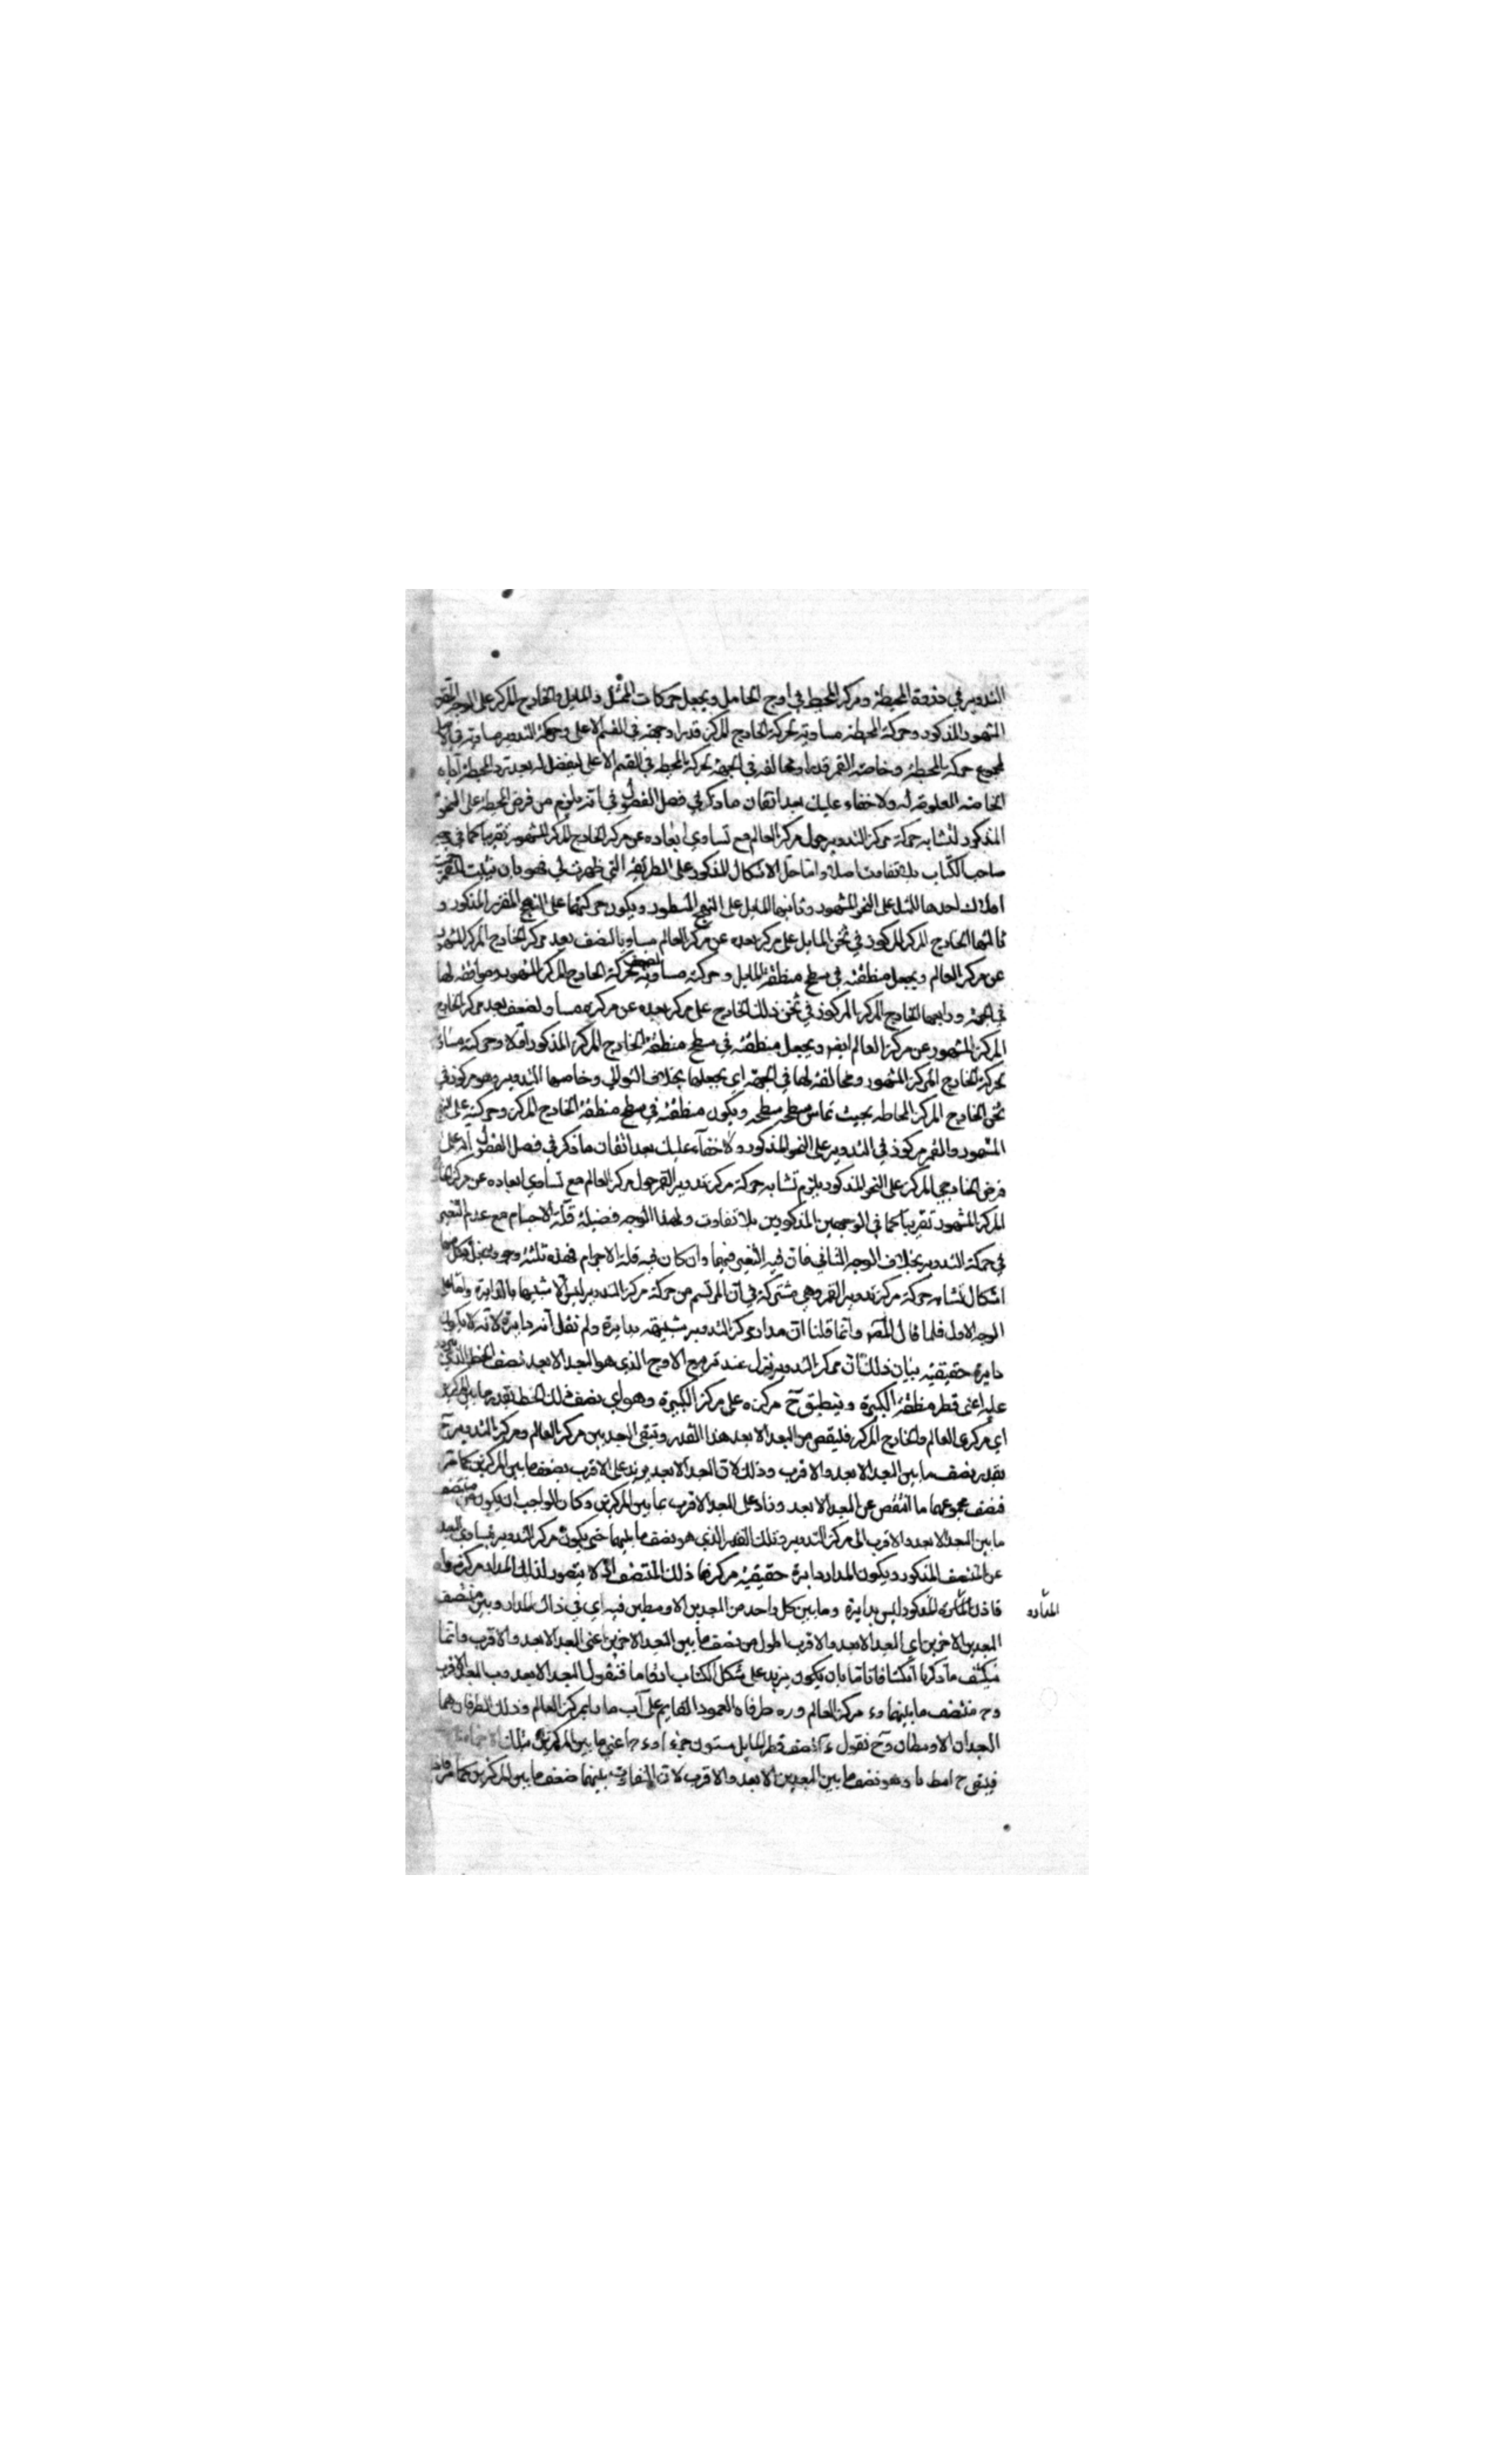 التدوير في مقعر المحيطة ومركز المحيط في اوج الحامل ويجعل حركات الممثل والمايل والخارج المركز على الوجه
المشهور المذكور وحركة المحيطة مساوية لحركة الخارج المركز قدرا وجهة في القسم الاعلى وحركة التدوير مساوية
لمجموع حركة المحيطة وخاصة القمر قدرا ومخالفة في الجهة لحركة المحيط في القسم الاعلى ليفضل له بعد رد المحيطة اياه
الخاصة المعلومة له ولا خفاء عليك بعد اتقان ما ذكر في فصل الفصول في انه يلزم من فرض المحيطة على النحو
المذكور لتشابه حركة مركز التدوير حول مركز العالم مع تساوي ابعاده عن مركز الخارج المركز المشهور تقريبا كما في
صاحب الكتاب بلا تفاوت اصلا واما حل الاشكال المذكور على الطريقة التي ظهرت لي فهو بان يثبت للقمر
افلاك احدها الممثل على النحو المشهور وثانيها المايل على النهج المسطور ويكون حركتهما على النهج المقرر المذكور و
ثالثها الخارج المركز المركوز في ثخن المايل على مركز بعده عن مركز العالم مساويا لنصف بعد مركز الخارج المركز المشهور
عن مركز العالم ويجعل منطقته في سطح منطقة المايل وحركته مساوية لضعف حركة الخارج المركز المشهور وموافقة لها
في الجهة ورابعها الخارج المركز المركوز في ثخن ذلك الخارج على مركز بعده عن مركزه مساو لنصف بعد مركز الخارج
المركز المشهور عن مركز العالم ايضا ويجعل منطقته في سطح منطقة الخارج المركز المذكور اولا وحركته مساو
لحركة الخارج المركز المشهور ومخالفة لها في الجهة اي يجعلها بخلاف التوالي وخامسها التدوير وهو مركوز في
ثخن الخارج المركز المحاط به بحيث تماس سطحه سطحه ويكون منطقته في سطح منطقة الخارج المركز وحركته على النحو
المشهور والقمر مركوز في التدوير على النحو المذكور ولا خفاء عليك بعد اتقان ما ذكر في فصل الفصول انه على
فرض الخارجي المركز على النحو المذكور يلزم تشابه حركة مركز تدوير القمر حول مركز العالم مع تساوي ابعاده عن مركز
المركز المشهور تقريبا كما في الوجهين المذكورين بلا تفاوت ولهذا الوجه فضيلة قلة الاجسام مع عدم التغير
في حركة التدوير بخلاف الوجه الثاني فان فيه التغير فيها وان كان فيه قلة الاجرام فهذه ثلثة وجوه
اشكال تشابه حركة مركز تدوير القمر وهي مشتركة في ان المرتسم من حركة مركز التدوير ليس الا شبيها بالدايرة
الوجه الاول فلما قال المصر وانما قلنا ان مدار مركز التدوير شبيهة بدايرة ولم نقل انه دايرة لانه لا يكون
دايرة حقيقية بيان ذلك ان مركز التدوير ينزل عند تربيع الاوج الذي هو البعد الابعد نصف الخط الذي
عليه اعني قطر منطقة الكبيرة وينطبق ح مركزه على مركز الكبيرة وهو اي نصف ذلك الخط بقدر ما بين المركزين
اي مركزي العالم والخارج المركز فلينقص من البعد الابعد هذا القدر ويبقى البعد بين مركز العالم ومركز التدوير ح
بقدر نصف ما بين البعد الابعد والاقرب وذلك لان البعد الابعد يزيد على الاقرب بضعف ما بين المركزين كما مر
فنصف مجموعهما ما انتقص عن البعد الابعد وزاد على البعد الاقرب بما بين المركزين وكان الواجب ان يكون من منتصف
ما بين البعد الابعد والاقرب الى مركز التدوير ذلك القدر الذي هو نصف ما بينهما حتى يكون مركز التدوير
عن المنتصف المذكور ويكون المدار دايرة حقيقية مركزها ذلك المنتصف اذ لا يتصور لذلك المدار مركز سواه
فاذن المذكور ليس بدايرة وما بين كل واحد من البعدين الاوسطين فيه اي في ذلك المدار وبين منتصف
البعدين الاخرين اي البعد الابعد والاقرب اطول من نصف ما بين البعد الاخرين اعني البعد الابعد والاقرب وانما
ينكشف ما ذكرنا انكشافا تاما بان يكون يزيد على شكل الكتاب ارقاما فنقول البعد الابعد وب البعد الاقرب
وح منتصف ما بينهما وء مركز العالم و ره طرفاه العمود القايم على آب مارا بمركز العالم وذلك الطرفان هما
البعدان الاوسطان وح نقول ءآ نصف قطر المايل ستون جزءا وء ح اعني ما بين المركزين
فيبقى ح ا وهو نصف ما بين البعدين الابعد والاقرب لان التفاوت بينهما ضعف ما بين المركزين كما مر
المدار